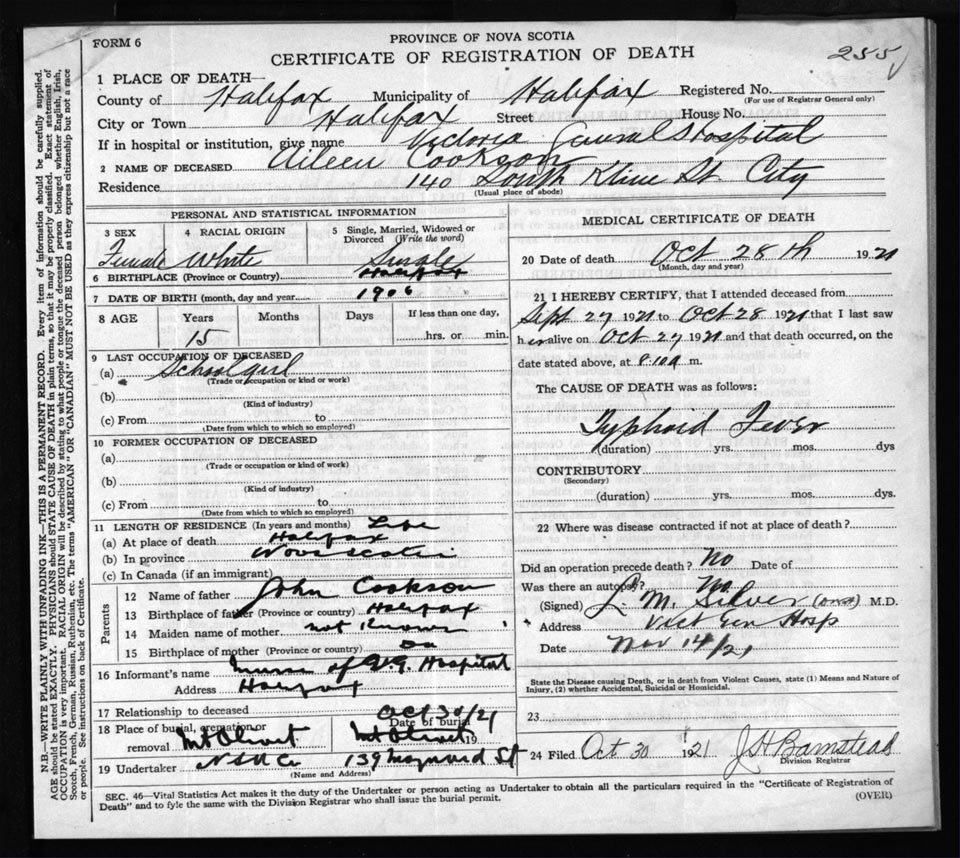 FORM 6
PROVINCE OF NOVA SCOTIA
CERTIFICATE OF REGISTRATION OF DEATH
255
1 PLACE OF DEATH—
County of Halifax Municipality of Halifax Registered No.
(For use of Registrar General only)
City or Town Halifax Street House No.
If in hospital or institution, give name Victoria General Hospital
2 NAME OF DECEASED Aileen Cookson
Residence 140 South Kline St. City
(Usual place of abode)
PERSONAL AND STATISTICAL INFORMATION
3 SEX 4 RACIAL ORIGIN 5 Single, Married, Widowed or Divorced (Write the word)
Female White Single
6 BIRTHPLACE (Province or Country) Halifax
7 DATE OF BIRTH (month, day and year) 1906
8 AGE Years Months Days If less than one day,
15 hrs. or min.
9 LAST OCCUPATION OF DECEASED
(a) Schoolgirl
(Trade or occupation or kind or work)
(b)
(Kind of industry)
(c) From to
(Date from which to which so employed)
10 FORMER OCCUPATION OF DECEASED
(a)
(Trade or occupation or kind of work)
(b)
(Kind of industry)
(c) From to
(Date from which to which so employed)
11 LENGTH OF RESIDENCE (In years and months) Life
(a) At place of death Halifax
(b) In province Nova Scotia
(c) In Canada (if an immigrant)
Parents
12 Name of father John Cookson
13 Birthplace of father (Province or country) Halifax
14 Maiden name of mother not Known
15 Birthplace of mother (Province or country) Do
16 Informant's name Nurse of V.G. Hospital
Address Halifax
17 Relationship to deceased
18 Place of burial, cremation or removal Mt Olivet
Date of burial Oct 30/21
19
Mt Olivet
19 Undertaker N S U Co 139 Maynard St
(Name and Address)
MEDICAL CERTIFICATE OF DEATH
20 Date of death Oct 28th 1921
(Month, day and year)
21 I HEREBY CERTIFY, that I attended deceased from
Sept 27 1921 to Oct 28 1921 that I last saw
her alive on Oct 27 1921 and that death occurred, on
date stated above, at 8.10 a m.
The CAUSE OF DEATH was as follows:
Typhoid Fever
(duration) yrs. mos. dys
CONTRIBUTORY
(Secondary)
(duration) yrs. mos. dys.
22 Where was disease contracted if not at place of death?
Did an operation precede death? No Date of
Was there an autopsy? No.
(Signed) L. M. Silver M.D.
Address Vict Gen Hosp
Date Nov 14/21
State the Disease causing Death, or in death from Violent Causes, state (1) Means and Nature of
Injury, (2) whether Accidental, Suicidal or Homicidal.
23
24 Filed Oct 30 1921 J H Barnstead
Division Registrar
SEC. 46—Vital Statistics Act makes it the duty of the Undertaker or person acting as Undertaker to obtain all the particulars required in the "Certificate of Registration of
Death" and to fyle the same with the Division Registrar who shall issue the burial permit.
(OVER)
N.B.—WRITE PLAINLY WITH UNFADING INK—THIS IS A PERMANENT RECORD. Every item of information should be carefully supplied.
AGE should be stated EXACTLY. PHYSICIANS should STATE CAUSE OF DEATH in plain terms, so that it may be properly classified. Exact statement of
OCCUPATION is very important. RACIAL ORIGIN will be described by stating to what people or tongue the deceased person belonged, whether English, Irish,
Scotch, French, German, Russian, Ruthenian, etc. The terms "AMERICAN" OR "CANADIAN" MUST NOT BE USED as they express citizenship but not a race
or people. See instructions on back of Certificate.